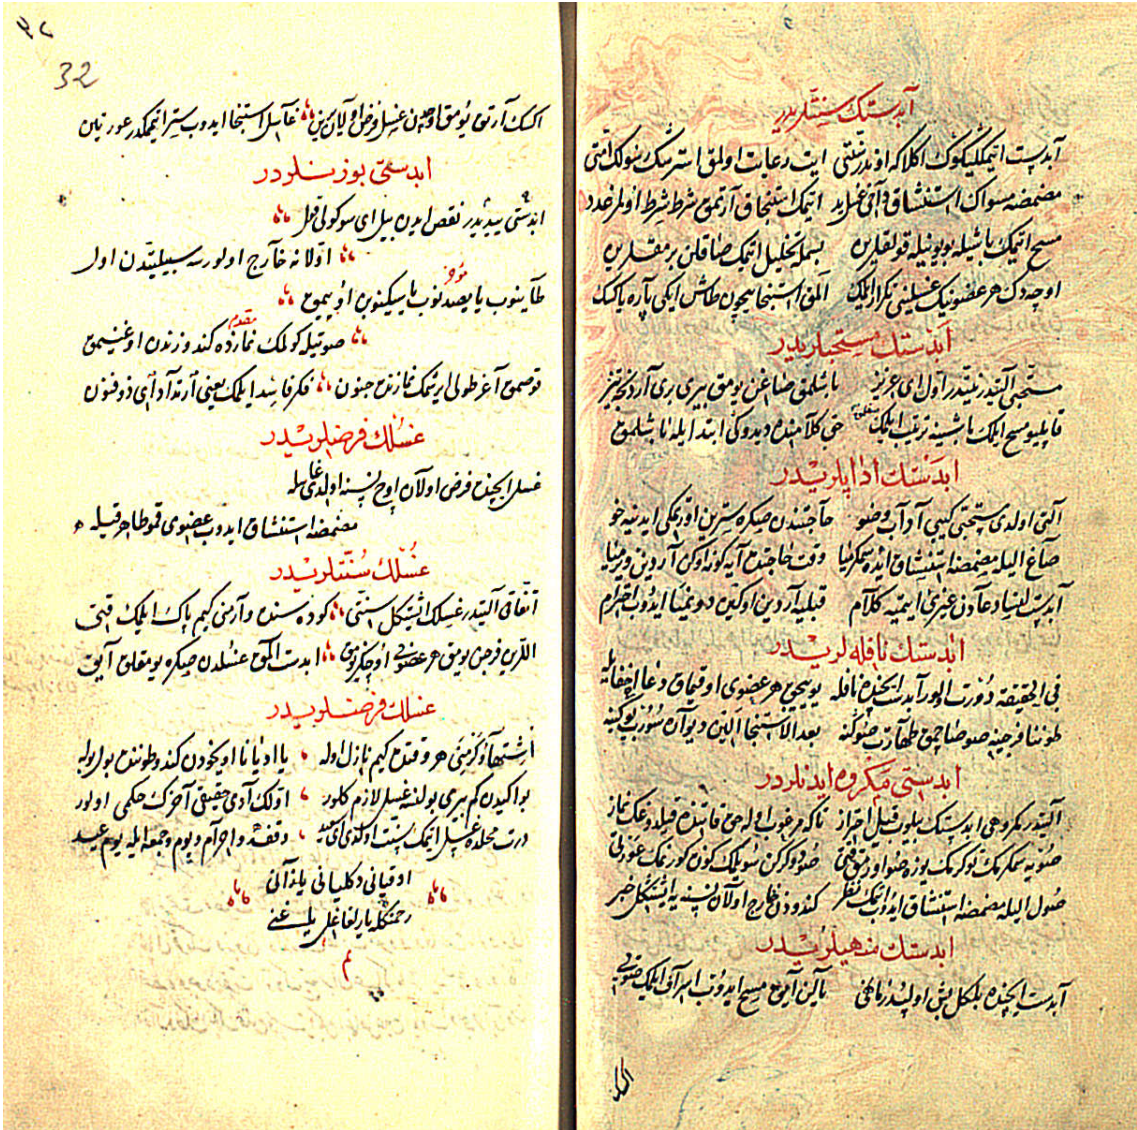 آبدستك سنتلریدر
آبدست ایتمكلیكوك اكلاكه اوندر سنتی ایت رعایت اولمق استرسك رسولك امتی
مضمضه مسواك استنشاق دآخی غسل ید ایتمك استنجاق آرتمق شرط شرط اولمز عدد
مسح ایتمك باشیله بویونیله قولقلرین بسمله تخلیل ایتمك صاقلن برمقلرین
اوجه دك هر عضونیك غسلینی تكرار ایلمك آلمق استنجا ایچون طاش ایكی پاره یا كسك
آبدستك مستحبلریدر
مستحبی آلتیدر نیتدر اول ای عزیز باشلمق صاغدن یومق بیری بری آردنجه تیز
قاپلیو مسح ایلمك باشینه ترتیب ایلمك حق كلامنده دیدوكی ابتدا ایله باشلمق
ابدستك ادابلریدر
آلتی اولدی مستحبی كیبی آداب وضو حاجتندن صكره سترین اورتمكی ایدینه خو
صاغ الیله مضمضه استنشاق ایده سمكرمیا وقت حاجتده آیه كونه اوكن آردین ویرمیا
آبدست آلنسا دعادن غیری ایتمیه كلام قبلیه آردین اوكین دونمیا ایدوب احترام
ابدستك نافله لریدر
فی الحقیقه دورت اولور آبدست ایچنده نافله یوییجق هر عضوی اوقیماق دعا اخفا ایله
طوننا فرجینه صو صاچمق طهارت صوكنه بعد الاستنجا الین دیواره سورر یوكنه
ابدستی مكروه ایدنلردر
آلتیدر مكروهی ابدستك بیلوب قیل احتراز تاكه مرغوب اوله حق قاتنده قیلدوغك نماز
صویه سمكرمك توكرمك یوزه صو اورمق قتی صو دوكركن سویلمك كون كورنمك عورتی
صول الیله مضمضه استنشاق ایدوب ایتمك نظر كندودن خارج اولان نسنه یه ایشتكل خبر
ابدستك منهیلریدر
آبدست ایچنده بلكل بش اولپدر ناهی یالین آیاق مسح ایدوب اسراف ایلمك صویی
اكسك
۳۲
32
اكسك آرتق یومق اوچدن غسل فرض اولان یرین غآسل استنجا ایدوب ستر ایتمكدر عورتین
ابدستی بوزنلردر
ابدستی یدیدر نقص ایدن بیل ای سوكولی قول
اولانه خآرج اولور سه سبیلیندن اول
طآینوب یا یصدنوب یا سیكنوب اویومق
مؤخر
مقدم
صوتیله كولمك نمازده كندوزندن اوغنیمق
قوصمق آغز طولی ایرشمك نمازده جنون فكر فاسد ایلمك یعنی آرتد آدای ذو فنون
غسلك فرضلریدر
غسل ایچنده فرض اولان اوچ نسنه اولدی غایله
مضمضه استنشاق ایدوب عضوی قمو طاهر قیله
غسلك سنتلریدر
اتفاقی آلتیدر غسلك ایشتكل سنتی كوده سنده وارمی كیم پاك ایلمك قتی
اللرین فرجن یومق هر عضوی اوچكز یومق ابدست المق غسلدن صكره یومقلق آیق
غسلك فرضلریدر
اشتهآ و كرمیتی هر وقتده كیم نازل اوله یا ادیانا اویخودن كندو طوننده بول بوله
بو ایكیدن كم بیری بولنه غسل لازم كلور اولك آدی حقیقی آخرك حكمی اولور
درت محلده غسل ایتمك سنت اولدی ای سعید وقفه و احرام و یوم جمعه ایله یوم عید
اوقیانی دكلیانی یازآنی
رحمتكله یارلغاغل یا غنی
م